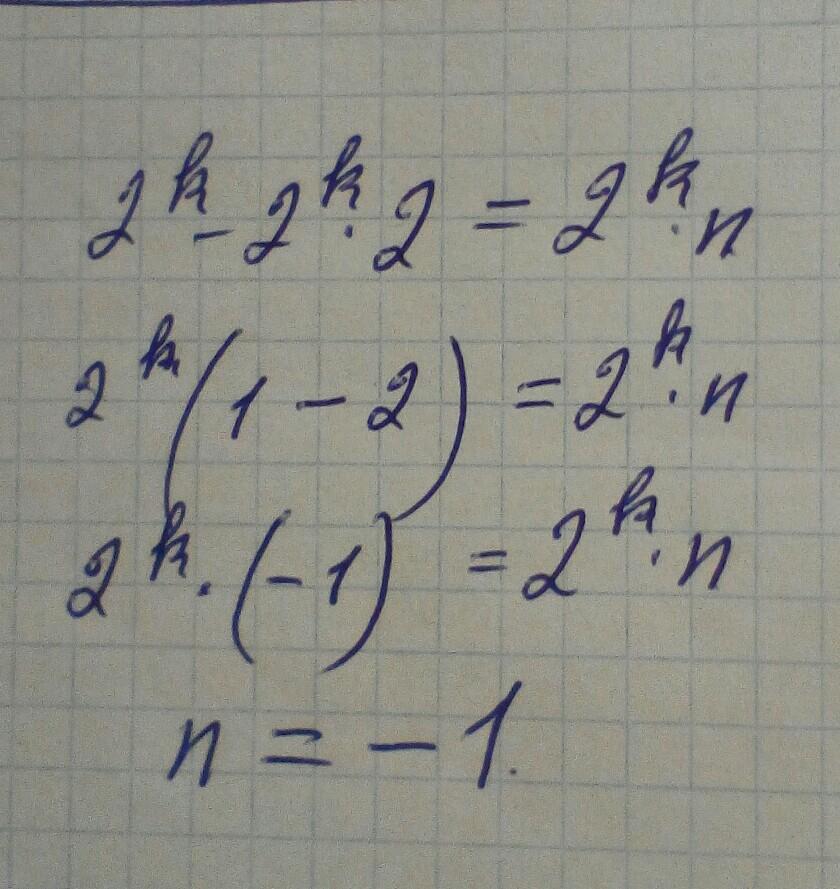 2^k - 2^k · 2 = 2^k · n
2^k (1 - 2) = 2^k · n
2^k · (-1) = 2^k · n
n = -1.